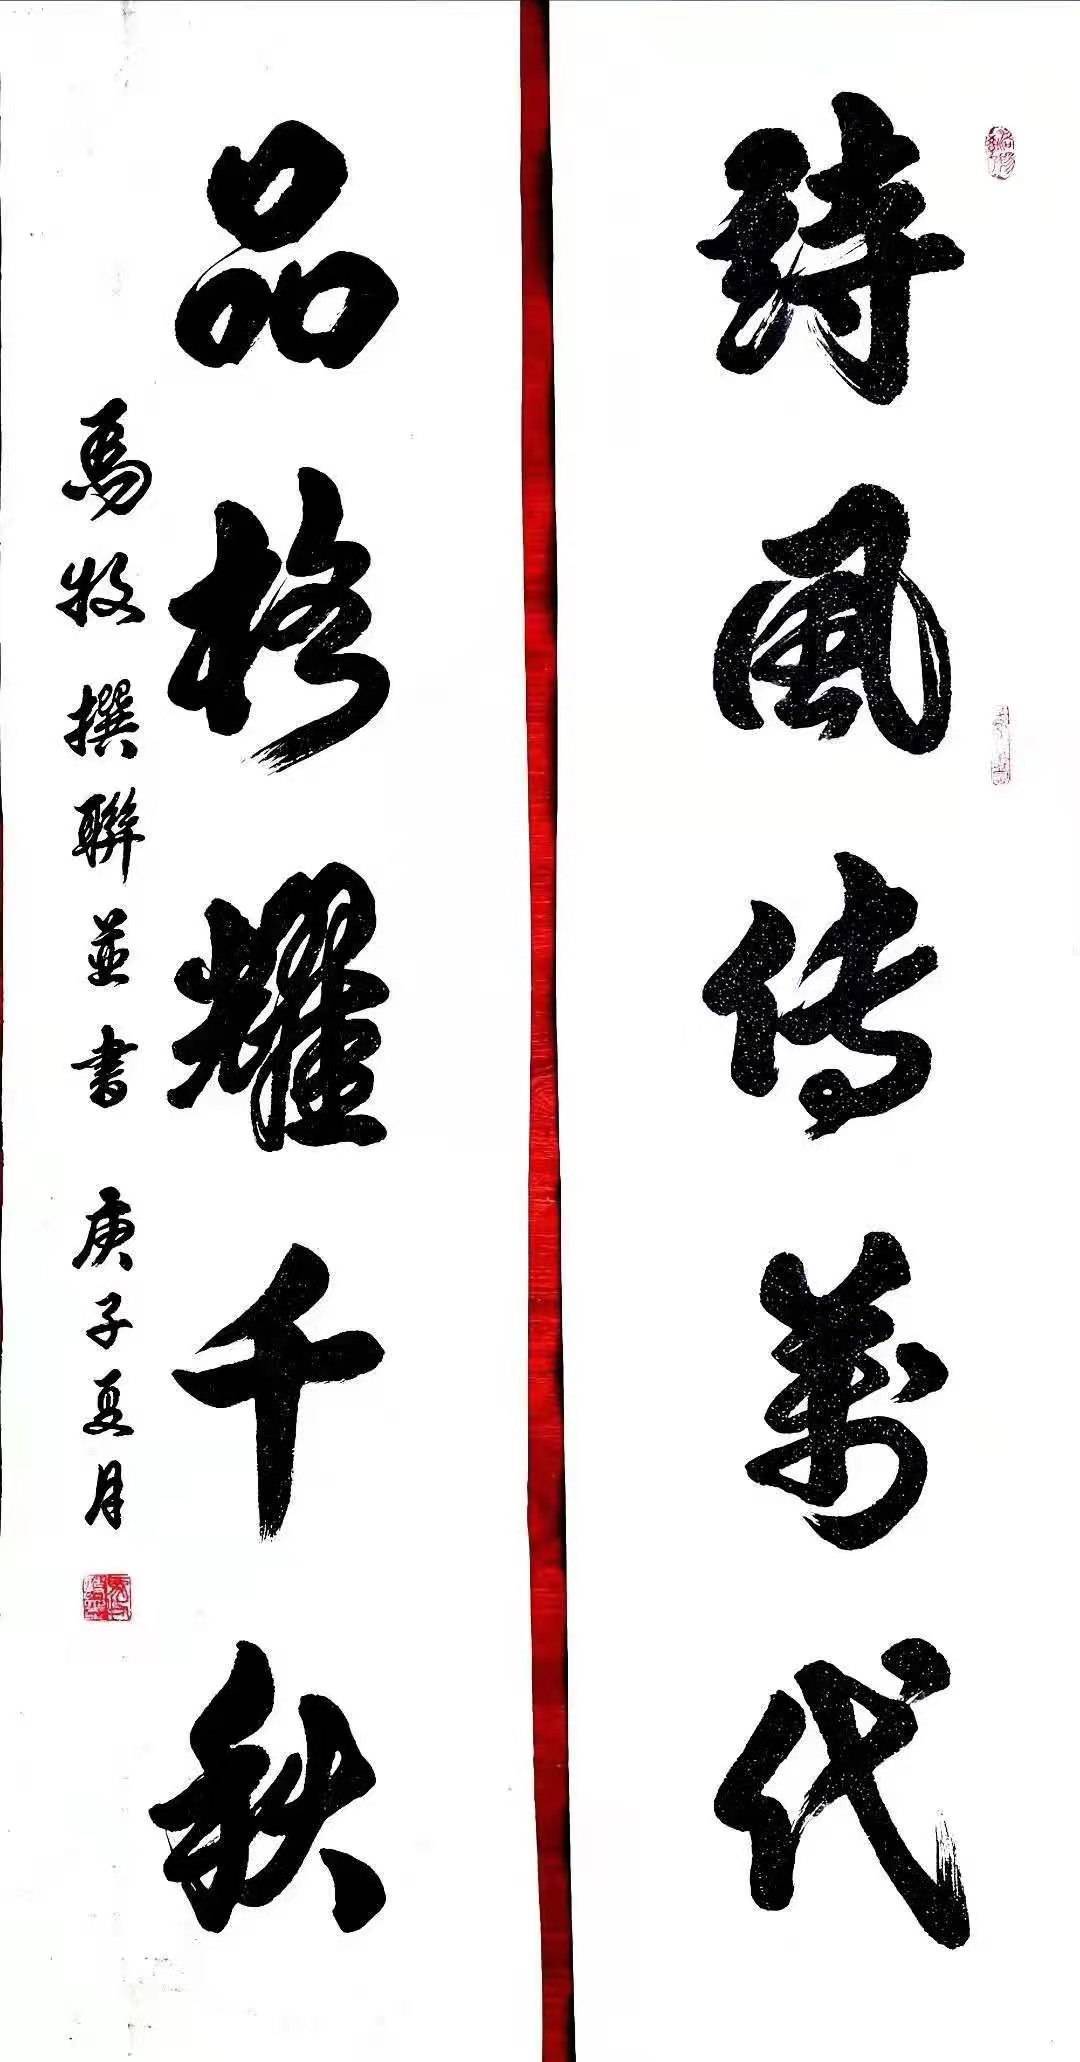 詩風传萬代
品格耀千秋
馬牧撰聯並書 庚子夏月